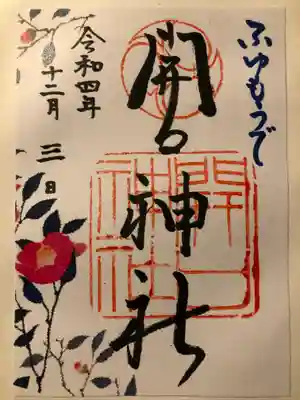 ふゆもうで
開口神社
令和四年
十二月 三日
開口
神社